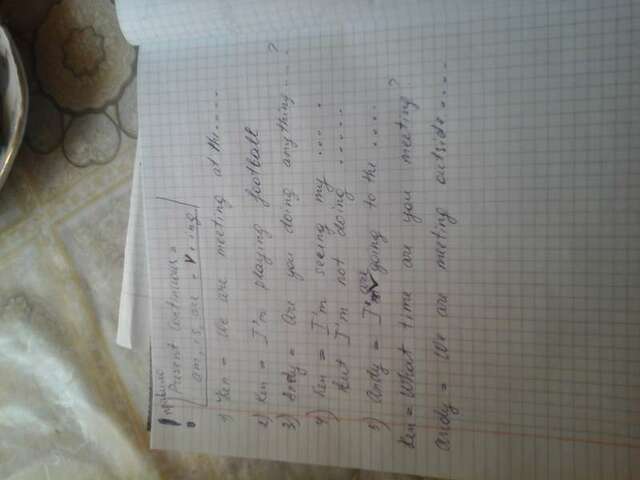 правило
Present Continuous =
am, is, are + V + ing
1) Ken = We are meeting at the.....
2) Ken = I'm playing football
3) Andy = Are you doing anything ....?
4) Ken = I'm seeing my .....
But I'm not doing .....
5) Andy = going to the ....
Ken = What time are you meeting?
Andy = We are meeting outside.....